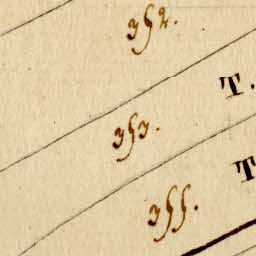 352.
T.
353.
T
355.